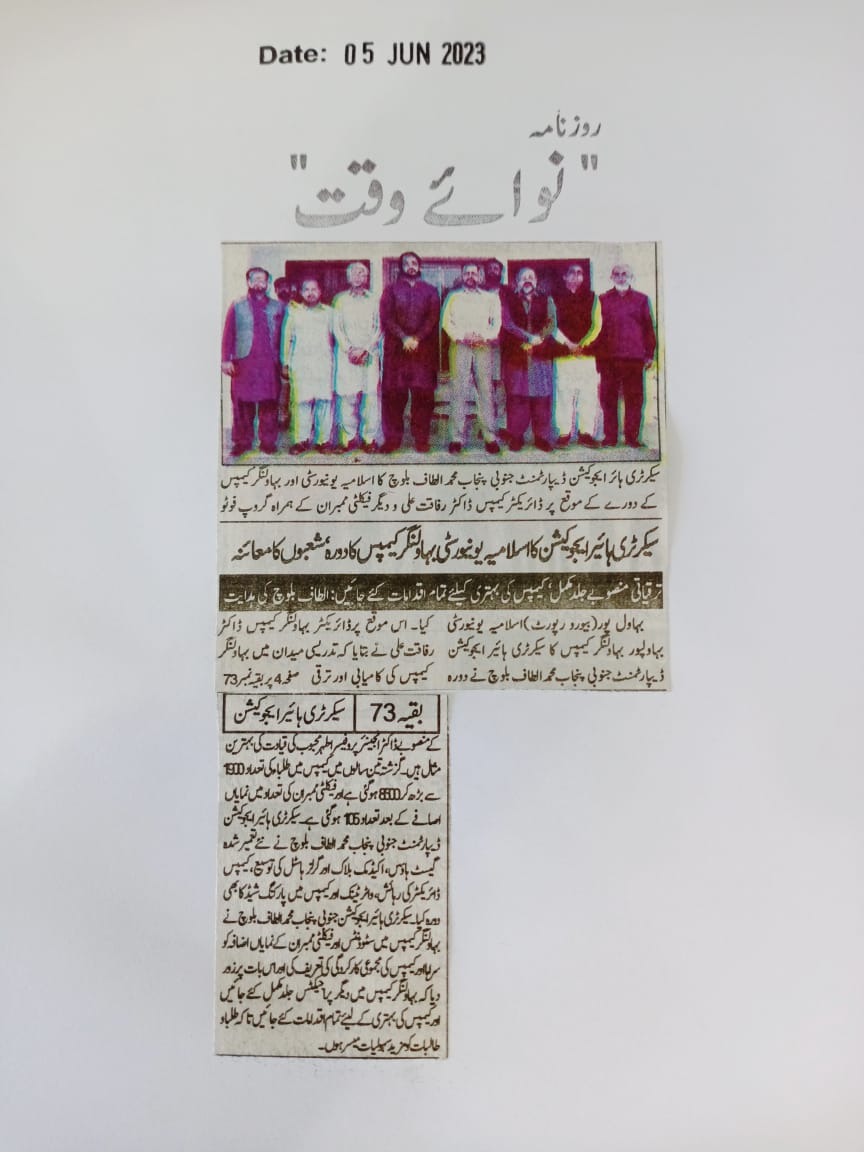 Date: 05 JUN 2023
روزنامہ
"نوائے وقت"
سیکرٹری ہائر ایجوکیشن ڈیپارٹمنٹ جنوبی پنجاب محمد الطاف بلوچ کا اسلامیہ یونیورسٹی اور بہاولنگر کیمپس
کے دورے کے موقع پر ڈائریکٹر کیمپس ڈاکٹر رفاقت علی و دیگر فیکلٹی ممبران کے ہمراہ گروپ فوٹو
سیکرٹری ہائیر ایجوکیشن کا اسلامیہ یونیورسٹی بہاولنگر کیمپس کا دورہ، شعبوں کا معائنہ
ترقیاتی منصوبے جلد مکمل، کیمپس کی بہتری کیلئے تمام اقدامات کئے جائیں: الطاف بلوچ کی ہدایت
بہاول پور (بیورو رپورٹ) اسلامیہ یونیورسٹی
بہاولپور بہاولنگر کیمپس کا سیکرٹری ہائیر ایجوکیشن
ڈیپارٹمنٹ جنوبی پنجاب محمد الطاف بلوچ نے دورہ
کیا۔ اس موقع پر ڈائریکٹر بہاولنگر کیمپس ڈاکٹر
رفاقت علی نے بتایا کہ تدریسی میدان میں بہاولنگر
کیمپس کی کامیابی اور ترقی صفحہ 4 پر بقیہ نمبر 73
بقیہ 73 سیکرٹری ہائیر ایجوکیشن
کے منصوبے ڈاکٹر انجینئر پروفیسر اطہر محبوب کی قیادت کی بہترین
مثال ہیں۔ گزشتہ تین سالوں میں کیمپس میں طلباء کی تعداد 1900
سے بڑھ کر 8500 ہو گئی ہے اور فیکلٹی ممبران کی تعداد میں نمایاں
اضافے کے بعد تعداد 105 ہو گئی ہے۔ سیکرٹری ہائیر ایجوکیشن
ڈیپارٹمنٹ جنوبی پنجاب محمد الطاف بلوچ نے نئے تعمیر شدہ
گیسٹ ہاؤس، اکیڈمک بلاک اور گرلز ہاسٹل کی توسیع، کیمپس
ڈائریکٹر کی رہائش، واٹر ٹینک اور کیمپس میں پارکنگ شیڈ کا بھی
دورہ کیا۔ سیکرٹری ہائیر ایجوکیشن جنوبی پنجاب محمد الطاف بلوچ نے
بہاولنگر کیمپس میں سٹوڈنٹس اور فیکلٹی ممبران کے نمایاں اضافہ کو
سراہا اور کیمپس کی مجموعی کارکردگی کی تعریف کی اور اس بات پر زور
دیا کہ بہاولنگر کیمپس میں دیگر پراجیکٹس جلد مکمل کئے جائیں
اور کیمپس کی بہتری کے لیئے تمام اقدامات کئے جائیں تا کہ طلبا و
طالبات کو مزید سہولیات میسر ہوں۔